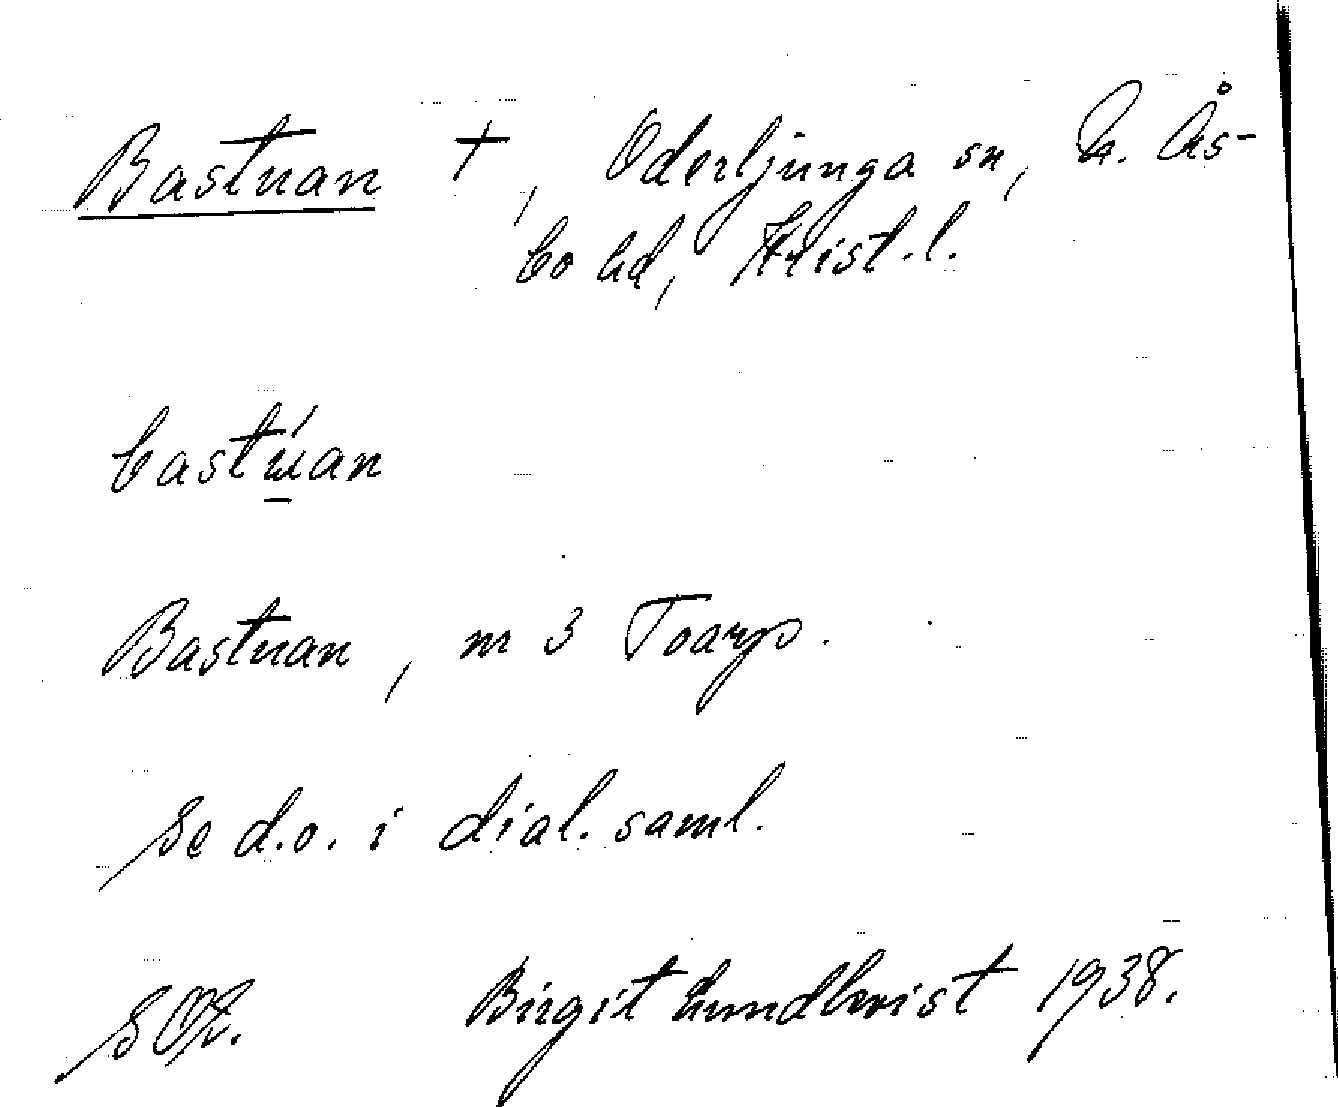 Bastuan †, Oderljunga sn, N. Ås-
bo hd, Krist. l.
bastú̲an
Bastuan, m 3 Toarp.
Se d.o. i dial. saml.
SOÄ. Birgit Lundkvist 1938.